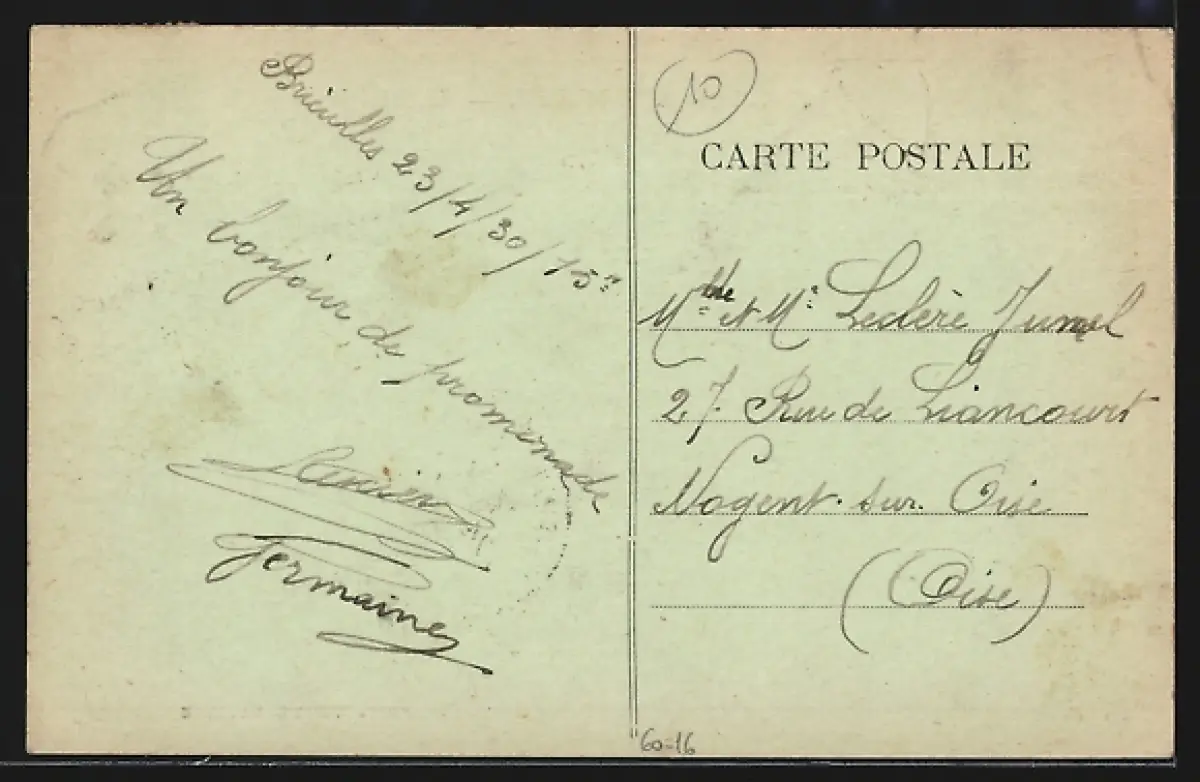 23/4/30/
Un bonjour de promenade
Germaine
10
CARTE POSTALE
Mlle et Mr Leclère Jumel
27 Rue de Liancourt
Nogent sur Oise
(Oise)
60-16